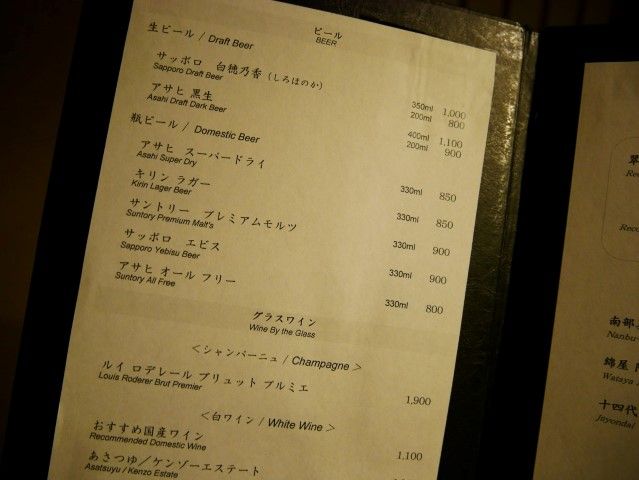 ビール
BEER
生ビール / Draft Beer
サッポロ 白穂乃香 (しろほのか)
Sapporo Draft Beer
350ml 1,000
200ml 800
アサヒ 黒生
Asahi Draft Dark Beer
400ml 1,100
200ml 900
瓶ビール / Domestic Beer
アサヒ スーパードライ
Asahi Super Dry
330ml 850
キリン ラガー
Kirin Lager Beer
330ml 850
サントリー プレミアムモルツ
Suntory Premium Malt's
330ml 900
サッポロ エビス
Sapporo Yebisu Beer
330ml 900
アサヒ オール フリー
Suntory All Free
330ml 800
グラスワイン
Wine By the Glass
＜シャンパーニュ / Champagne＞
ルイ ロデレール ブリュット プルミエ
Louis Roderer Brut Premier
1,900
＜白ワイン / White Wine＞
おすすめ国産ワイン
Recommended Domestic Wine
1,100
あさつゆ／ケンゾーエステート
Asatsuyu / Kenzo Estate
翠
Reco
南部
Nanbu-
錦屋
Wataya
十四代
Juyondai